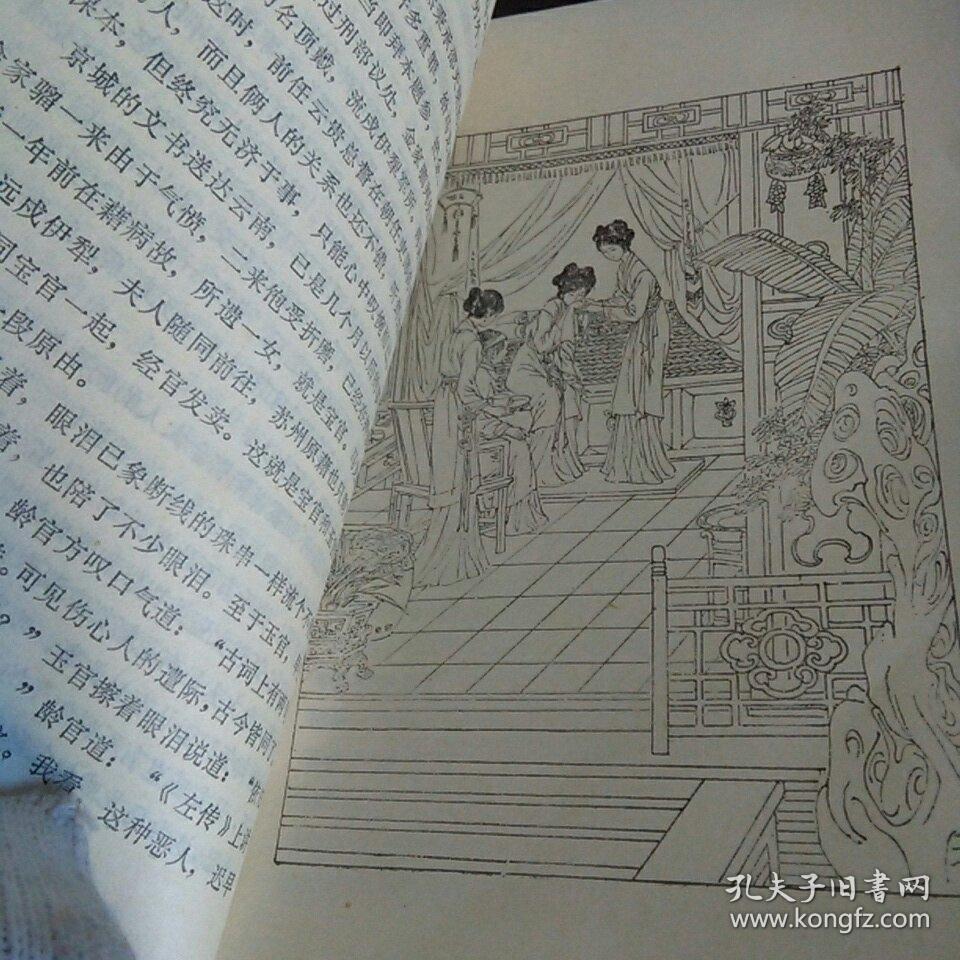 当即拜本题参，
过刑部议处，金家骝
名顶戴，流戍伊犁
这时，前任云贵总督在朝任
人，而且俩人的关系也还不错，
课本，但终究无济于事，只能心中叨
京城的文书送达云南，已是几个月以
家骝一来由于气愤，二来他受折磨，已
一年前在藉病故，所遗一女，就是宝官，
远戍伊犁，夫人随同前往，苏州原藉也
同宝官一起，经官发卖。这就是宝官
段原由。
着，眼泪已象断线的珠串一样流个
着，也陪了不少眼泪。至于玉官，
龄官方叹口气道：“古词上有
。可见伤心人的遭际，古今皆同
？”玉官擦着眼泪说道：“
”龄官道：“《左传》上
。我看，这种恶人，迟早
孔夫子旧书网
www.kongfz.com